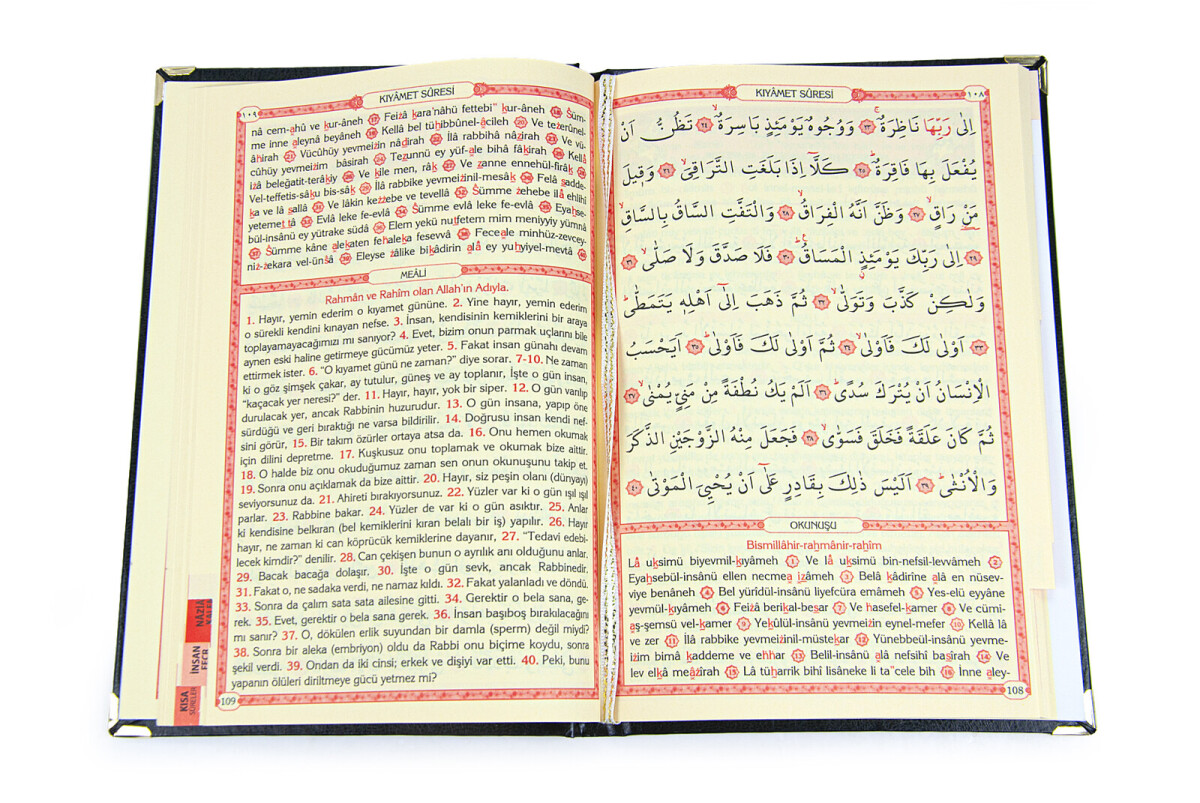 KIYÂMET SÛRESİ
١٠٨
اِلٰى رَبِّهَا نَاظِرَةٌۚ ﴿٢٣﴾ وَوُجُوهٌ يَوْمَئِذٍ بَاسِرَةٌۙ ﴿٢٤﴾ تَظُنُّ اَنْ
يُفْعَلَ بِهَا فَاقِرَةٌؕ ﴿٢٥﴾ كَلَّٓا اِذَا بَلَغَتِ التَّرَاقِيَۙ ﴿٢٦﴾ وَق۪يلَ
مَنْ رَاقٍۙ ﴿٢٧﴾ وَظَنَّ اَنَّهُ الْفِرَاقُۙ ﴿٢٨﴾ وَالْتَفَّتِ السَّاقُ بِالسَّاقِۙ
﴿٢٩﴾ اِلٰى رَبِّكَ يَوْمَئِذٍ الْمَسَاقُؕ ﴿٣٠﴾ فَلَا صَدَّقَ وَلَا صَلّٰىۙ ﴿٣١﴾
وَلٰكِنْ كَذَّبَ وَتَوَلّٰىۙ ﴿٣٢﴾ ثُمَّ ذَهَبَ اِلٰٓى اَهْلِه۪ يَتَمَطّٰىؕ
﴿٣٣﴾ اَوْلٰى لَكَ فَاَوْلٰىۙ ﴿٣٤﴾ ثُمَّ اَوْلٰى لَكَ فَاَوْلٰىؕ ﴿٣٥﴾ اَيَحْسَبُ
الْاِنْسَانُ اَنْ يُتْرَكَ سُدًىؕ ﴿٣٦﴾ اَلَمْ يَكُ نُطْفَةً مِنْ مَنِيٍّ يُمْنٰىۙ ﴿٣٧﴾
ثُمَّ كَانَ عَلَقَةً فَخَلَقَ فَسَوّٰىۙ ﴿٣٨﴾ فَجَعَلَ مِنْهُ الزَّوْجَيْنِ الذَّكَرَ
وَالْاُنْثٰىؕ ﴿٣٩﴾ اَلَيْسَ ذٰلِكَ بِقَادِرٍ عَلٰٓى اَنْ يُحْيِيَ الْمَوْتٰى ﴿٤٠﴾
OKUNUŞU
Bismillâhir-raḥmânir-raḥîm
Lâ uksimü biyevmil-kıyâmeh (1) Ve lâ uksimü bin-nefsil-levvâmeh (2)
Eyahsebül-insânü ellen necmea izâmeh (3) Belâ kâdirîne alâ en nüsev-
viye benâneh (4) Bel yürîdül-insânü liyefcüra emâmeh (5) Yes-elü eyyâne
yevmül-kıyâmeh (6) Feizâ berikal-besar (7) Ve hasefel-kamer (8) Ve cümi-
aş-şemsü vel-kamer (9) Yekûlül-insânü yevmeizin eynel-mefer (10) Kellâ lâ
ve zer (11) İlâ rabbike yevmeizinil-müstekar (12) Yünebbeül-insânü yevme-
izin bimâ kaddeme ve ehhar (13) Belil-insânü alâ nefsihî basîrah (14) Ve
lev elkâ meâzîrah (15) Lâ tüharrik bihî lisâneke li ta"cele bih (16) İnne aley-
108
KIYÂMET SÛRESİ
١٠٩
nâ cem-ahû ve kur-âneh (17) Feizâ kara'nâhü fettebi" kur-âneh (18) Süm-
me inne aleynâ beyâneh (19) Kellâ bel tühibbûnel-âcileh (20) Ve tezerûnel-
âhirah (21) Vücûhüy yevmeizin nâdirah (22) İlâ rabbihâ nâzirah (23) Ve vü-
cûhüy yevmeizim bâsirah (24) Tezunnü ey yüf-ale bihâ fâkirah (25) Kellâ
izâ beleğatit-terâkiy (26) Ve kîle men, râk (27) Ve zanne ennehül-firâk (28)
Vel-teffetis-sâku bis-sâk (29) İlâ rabbike yevmeizinil-mesâk (30) Felâ sadde-
ka ve lâ sallâ (31) Ve lâkin kezzebe ve tevellâ (32) Sümme zehebe ilâ ehlihî
yetemettâ (33) Evlâ leke fe-evlâ (34) Sümme evlâ leke fe-evlâ (35) Eyahse-
bül-insânü ey yütrake südâ (36) Elem yekü nutfetem mim meniyyiy yümnâ
(37) Sümme kâne alekaten fehaleka fesevvâ (38) Feceale minhüz-zevcey-
niz-zekara vel-ünsâ (39) Eleyse zâlike bikâdirin alâ ey yuhyiyel-mevtâ (40)
MEÂLİ
Rahmân ve Rahîm olan Allah'ın Adıyla.
1. Hayır, yemin ederim o kıyamet gününe. 2. Yine hayır, yemin ederim
o sürekli kendini kınayan nefse. 3. İnsan, kendisinin kemiklerini bir araya
toplayamayacağımızı mı sanıyor? 4. Evet, bizim onun parmak uçlarını bile
aynen eski haline getirmeye gücümüz yeter. 5. Fakat insan günahı devam
ettirmek ister. 6. "O kıyamet günü ne zaman?" diye sorar. 7-10. Ne zaman
ki o göz şimşek çakar, ay tutulur, güneş ve ay toplanır, İşte o gün insan,
"kaçacak yer neresi?" der. 11. Hayır, hayır, yok bir siper. 12. O gün varılıp
durulacak yer, ancak Rabbinin huzurudur. 13. O gün insana, yapıp öne
sürdüğü ve geri bıraktığı ne varsa bildirilir. 14. Doğrusu insan kendi nef-
sini görür, 15. Bir takım özürler ortaya atsa da. 16. Onu hemen okumak
için dilini depretme. 17. Kuşkusuz onu toplamak ve okumak bize aittir.
18. O halde biz onu okuduğumuz zaman sen onun okunuşunu takip et.
19. Sonra onu açıklamak da bize aittir. 20. Hayır, siz peşin olanı (dünyayı)
seviyorsunuz da. 21. Ahireti bırakıyorsunuz. 22. Yüzler var ki o gün ışıl ışıl
parlar. 23. Rabbine bakar. 24. Yüzler de var ki o gün asıktır. 25. Anlar
ki kendisine belkıran (bel kemiklerini kıran belalı bir iş) yapılır. 26. Hayır
hayır, ne zaman ki can köprücük kemiklerine dayanır, 27. "Tedavi edebi-
lecek kimdir?" denilir. 28. Can çekişen bunun o ayrılık anı olduğunu anlar.
29. Bacak bacağa dolaşır. 30. İşte o gün sevk, ancak Rabbinedir.
31. Fakat o, ne sadaka verdi, ne namaz kıldı. 32. Fakat yalanladı ve döndü.
33. Sonra da çalım sata sata ailesine gitti. 34. Gerektir o bela sana, ge-
rek. 35. Evet, gerektir o bela sana gerek. 36. İnsan başıboş bırakılacağını
mı sanır? 37. O, dökülen erlik suyundan bir damla (sperm) değil miydi?
38. Sonra bir aleka (embriyon) oldu da Rabbi onu biçime koydu, sonra
şekil verdi. 39. Ondan da iki cinsi; erkek ve dişiyi var etti. 40. Peki, bunu
yapanın ölüleri diriltmeye gücü yetmez mi?
109
NÂZİÂT
İNSAN
FECR
KISA
SÛRELER